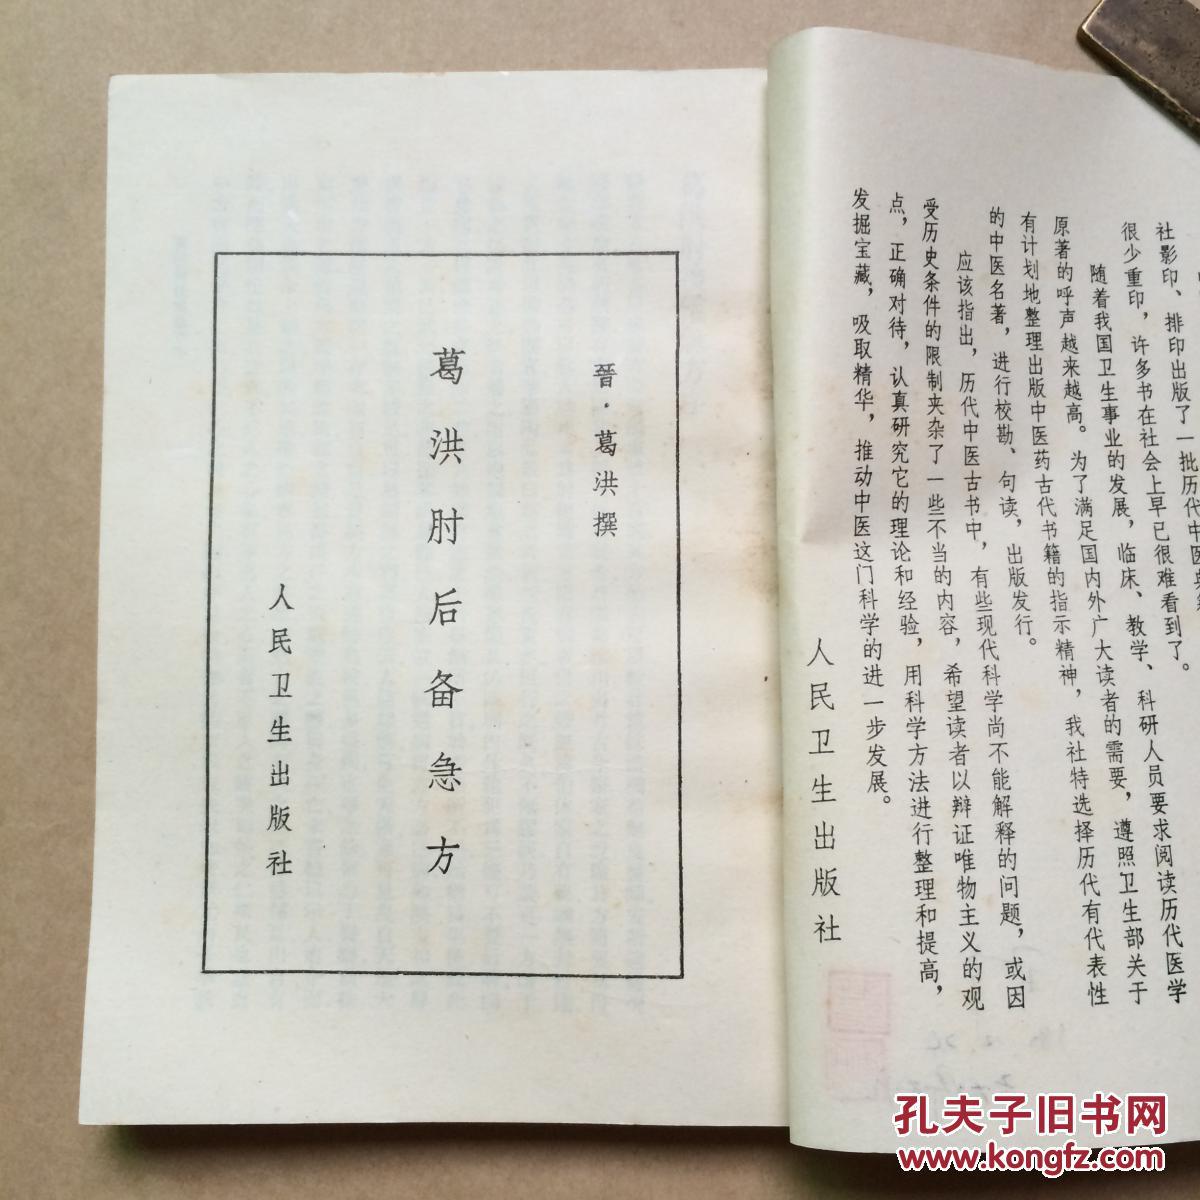 社影印、排印出版了一批历代中医典籍
很少重印，许多书在社会上早已很难看到了。
随着我国卫生事业的发展，临床、教学、科研人员要求阅读历代医学
原著的呼声越来越高。为了满足国内外广大读者的需要，遵照卫生部关于
有计划地整理出版中医药古代书籍的指示精神，我社特选择历代有代表性
的中医名著，进行校勘、句读，出版发行。
应该指出，历代中医古书中，有些现代科学尚不能解释的问题，或因
受历史条件的限制夹杂了一些不当的内容，希望读者以辩证唯物主义的观
点，正确对待，认真研究它的理论和经验，用科学方法进行整理和提高，
发掘宝藏，吸取精华，推动中医这门科学的进一步发展。
人民卫生出版社
晉·葛洪撰
葛洪肘后备急方
人民卫生出版社
孔夫子旧书网
www.kongfz.com